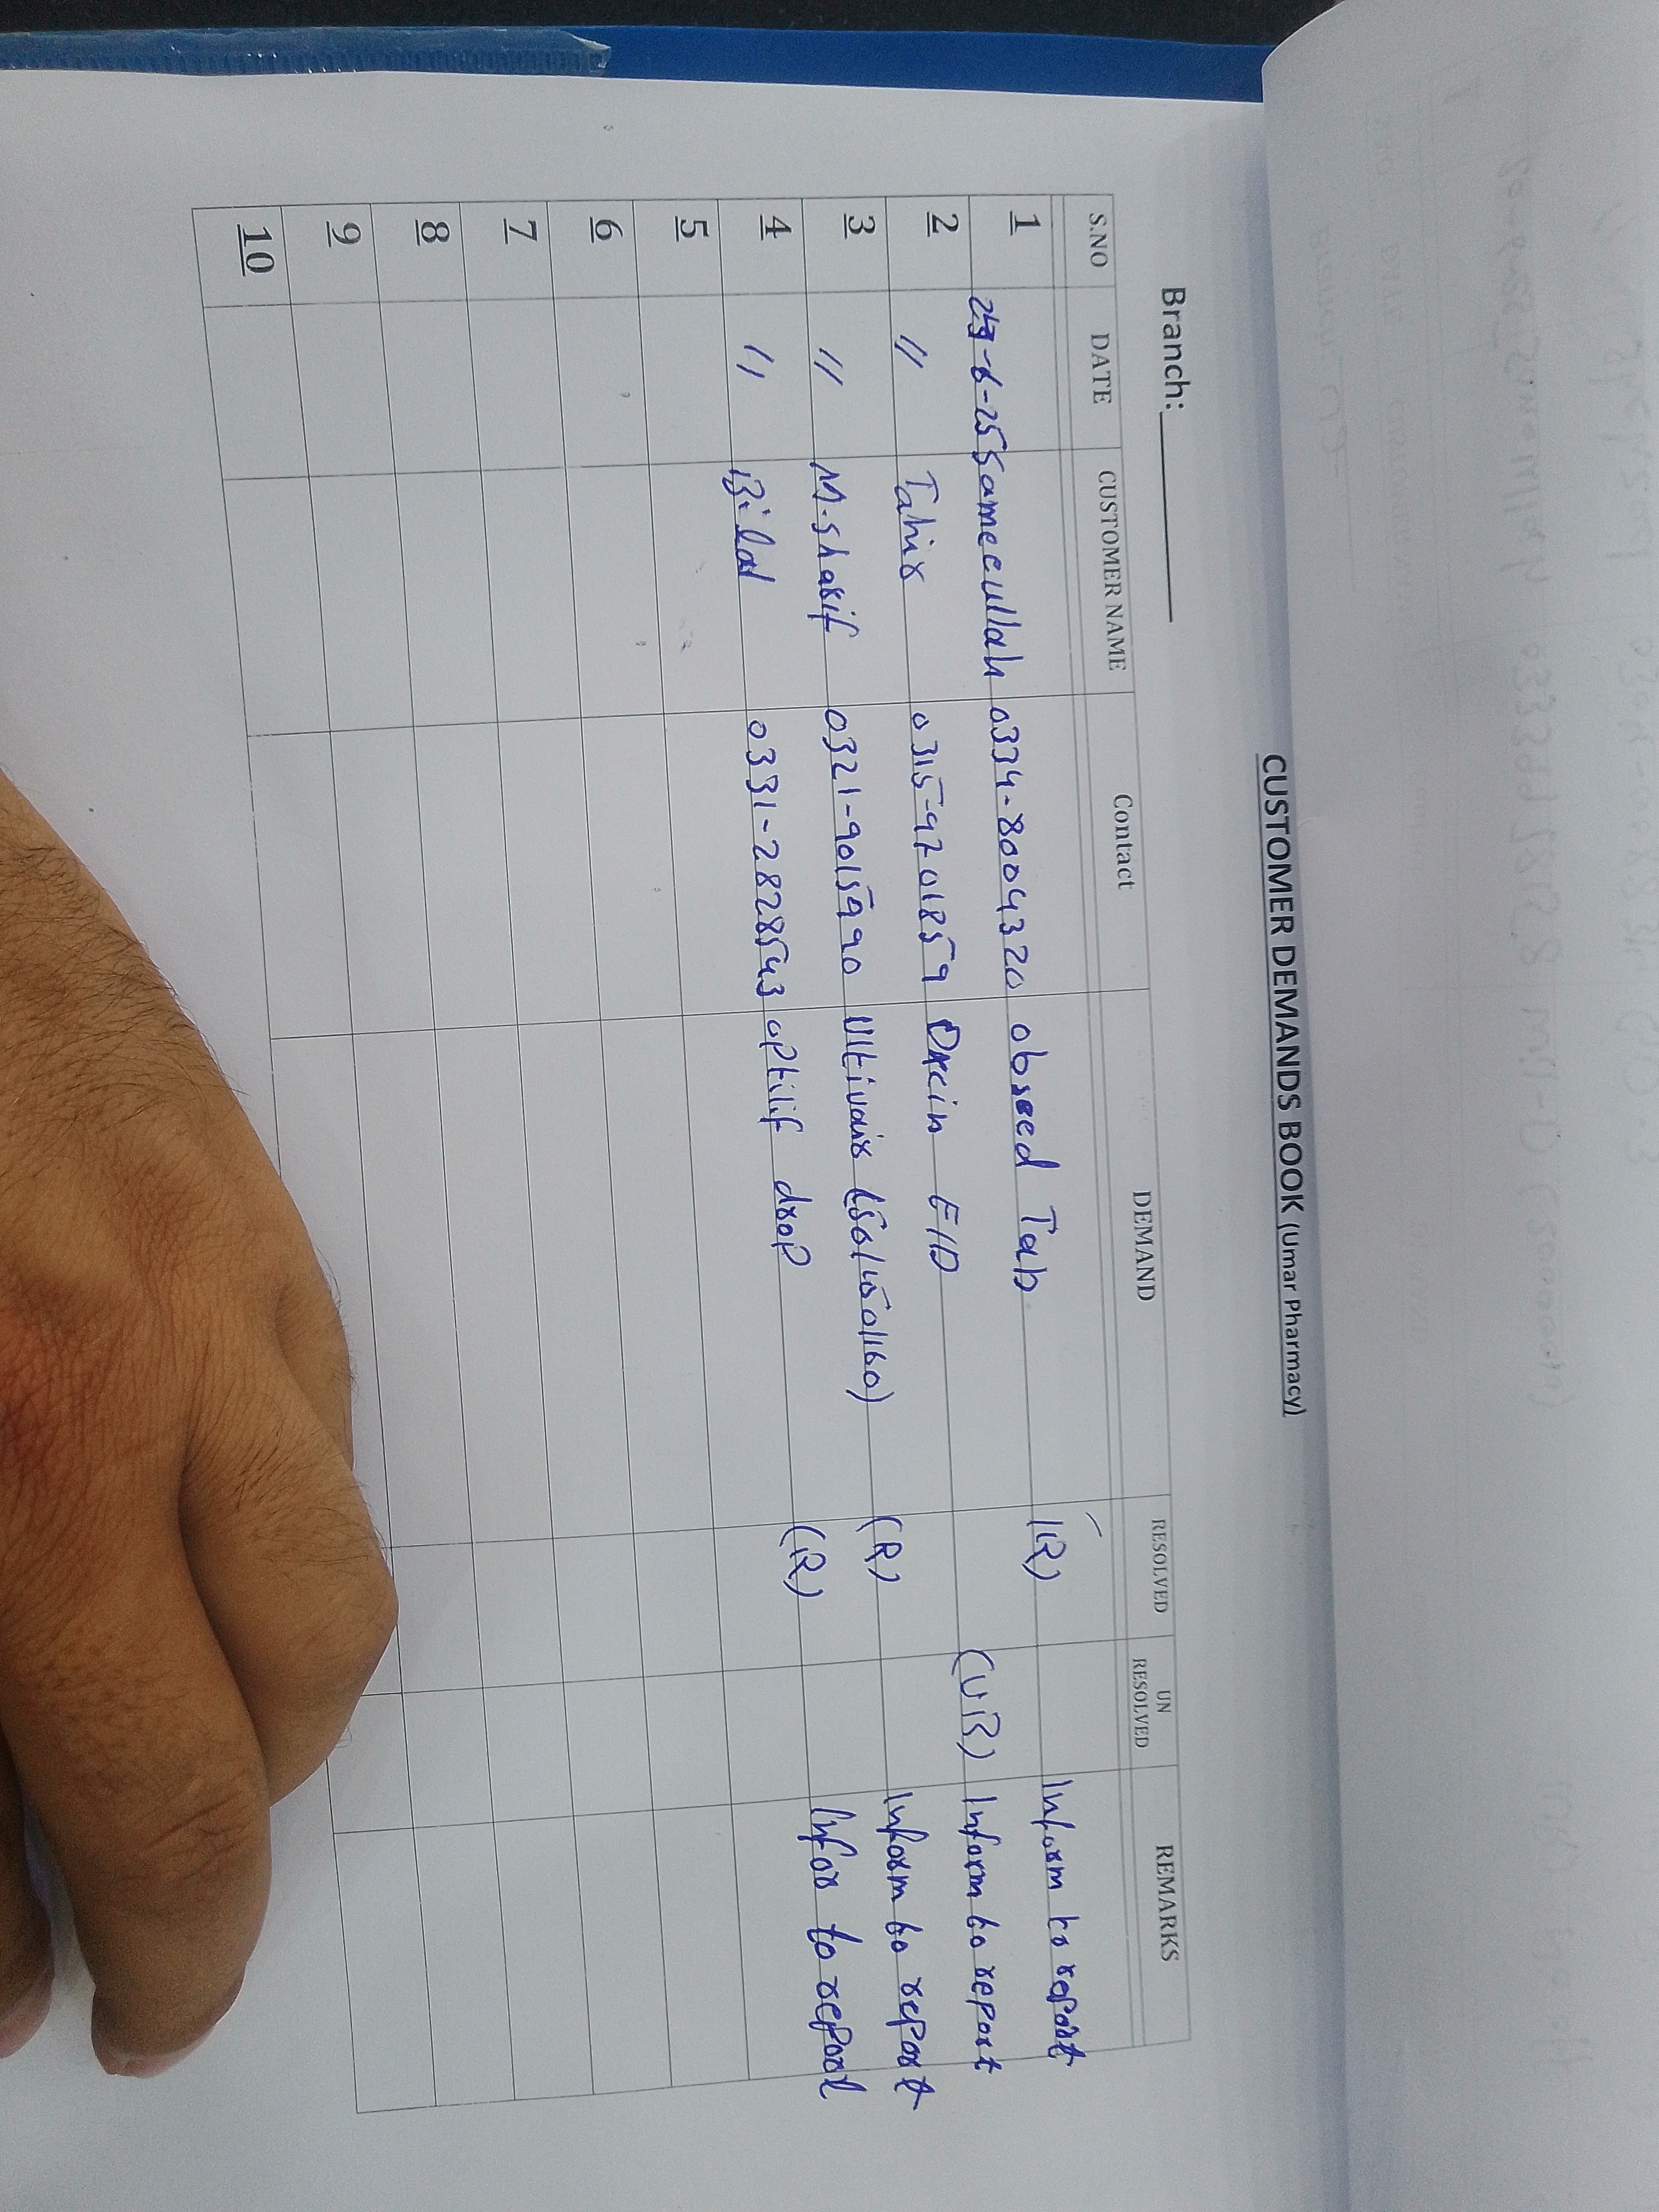 CUSTOMER DEMANDS BOOK (Umar Pharmacy)
Branch:
S.NO DATE CUSTOMER NAME Contact DEMAND RESOLVED UN RESOLVED REMARKS
1 -6-25 Sameeullah 0334-8004320 obseed Tab (R) Inform to report
2 " Tahir 0315-97201859 Oxcin E/D (UR) Inform to report
3 " M.sharif 0321-9015990 Ultivair (50/150/160) (R) Inform to report
4 " Bilal 0331-2828543 optilif drop (R) Infor to report
5
6
7
8
9
10